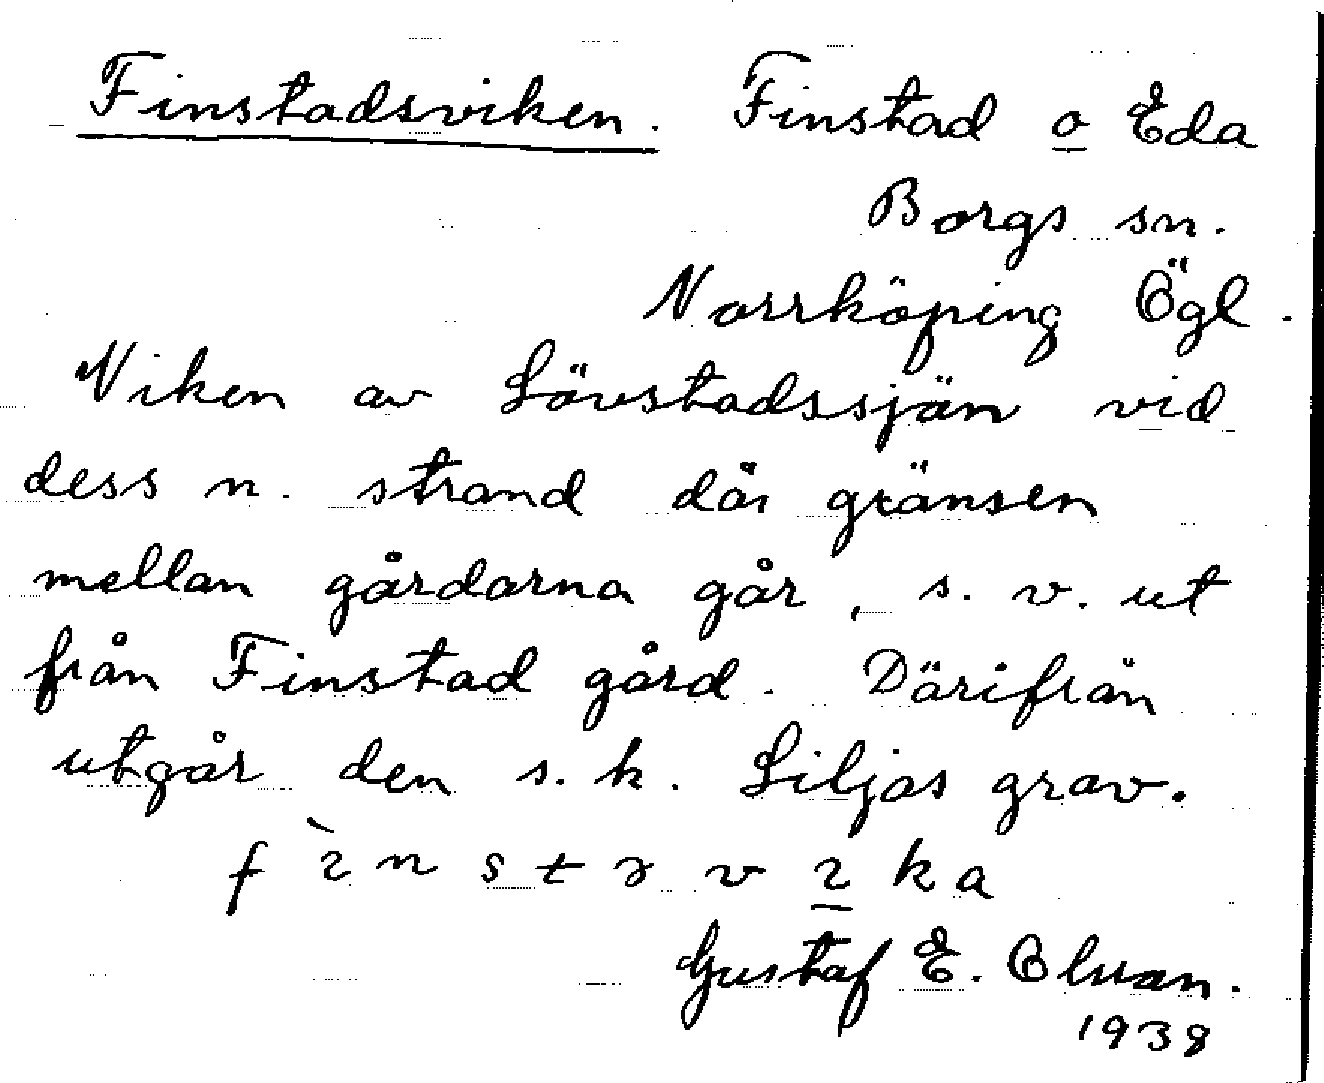 Finstadsviken. Finstad o Eda
Borgs sn.
Norrköping Ögl.
Viken av Lövstadssjön vid
dess n. strand där gränsen
mellan gårdarna går, s. v. ut
från Finstad gård. Därifrån
utgår den s. k. Liljas grav.
Gustaf E. Olsson.
1938